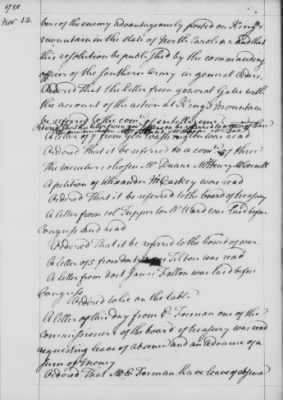 1780
Nov. 13.
ber of the enemy advantageously posted on King's
mountain in the state of North Carolina and that
this resolution be published by the commanding
officer of the southern army in general orders.
Ordered That the letter from general Gates with
the account of the action at King's mountain
be referred to the com of intelligence
A letter of 9 from was read
Ordered That it be referred to a com of three
The members chosen Mr Duane Mr Henry
A petition of Alexander McCaskey was read
Ordered That it be referred to the board of treasury
A letter from col Jos Ward was laid before
Congress and read
Ordered That it be referred to the board of war.
A letter of 5 from doct Tilton was read
A letter from doct James Fallon was laid before
Congress
Ordered to lie on the table.
A letter of this day from E. Forman one of the
commissioners of the board of treasury was read
requesting leave of absence and an advance of a
sum of money
Ordered That Mr E Forman have leave of absence